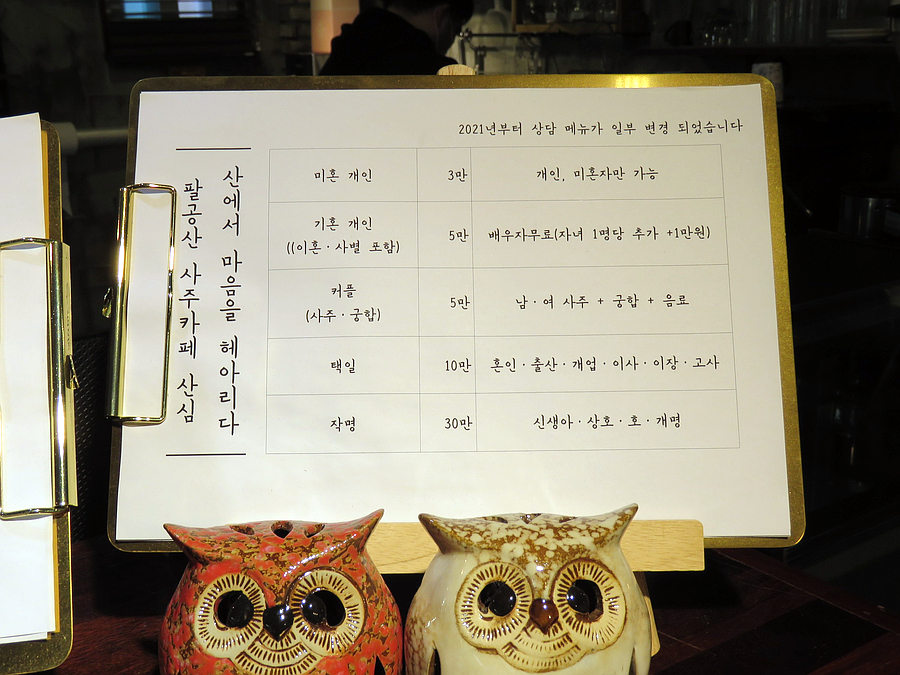 2021년부터 상담 메뉴가 일부 변경 되었습니다
산에서 마음을 헤아리다
팔공산 사주카페 산심
미혼 개인 3만 개인, 미혼자만 가능
기혼 개인
((이혼·사별 포함) 5만 배우자무료(자녀 1명당 추가 +1만원)
커플
(사주·궁합) 5만 남·여 사주 + 궁합 + 음료
택일 10만 혼인·출산·개업·이사·이장·고사
작명 30만 신생아·상호·호·개명